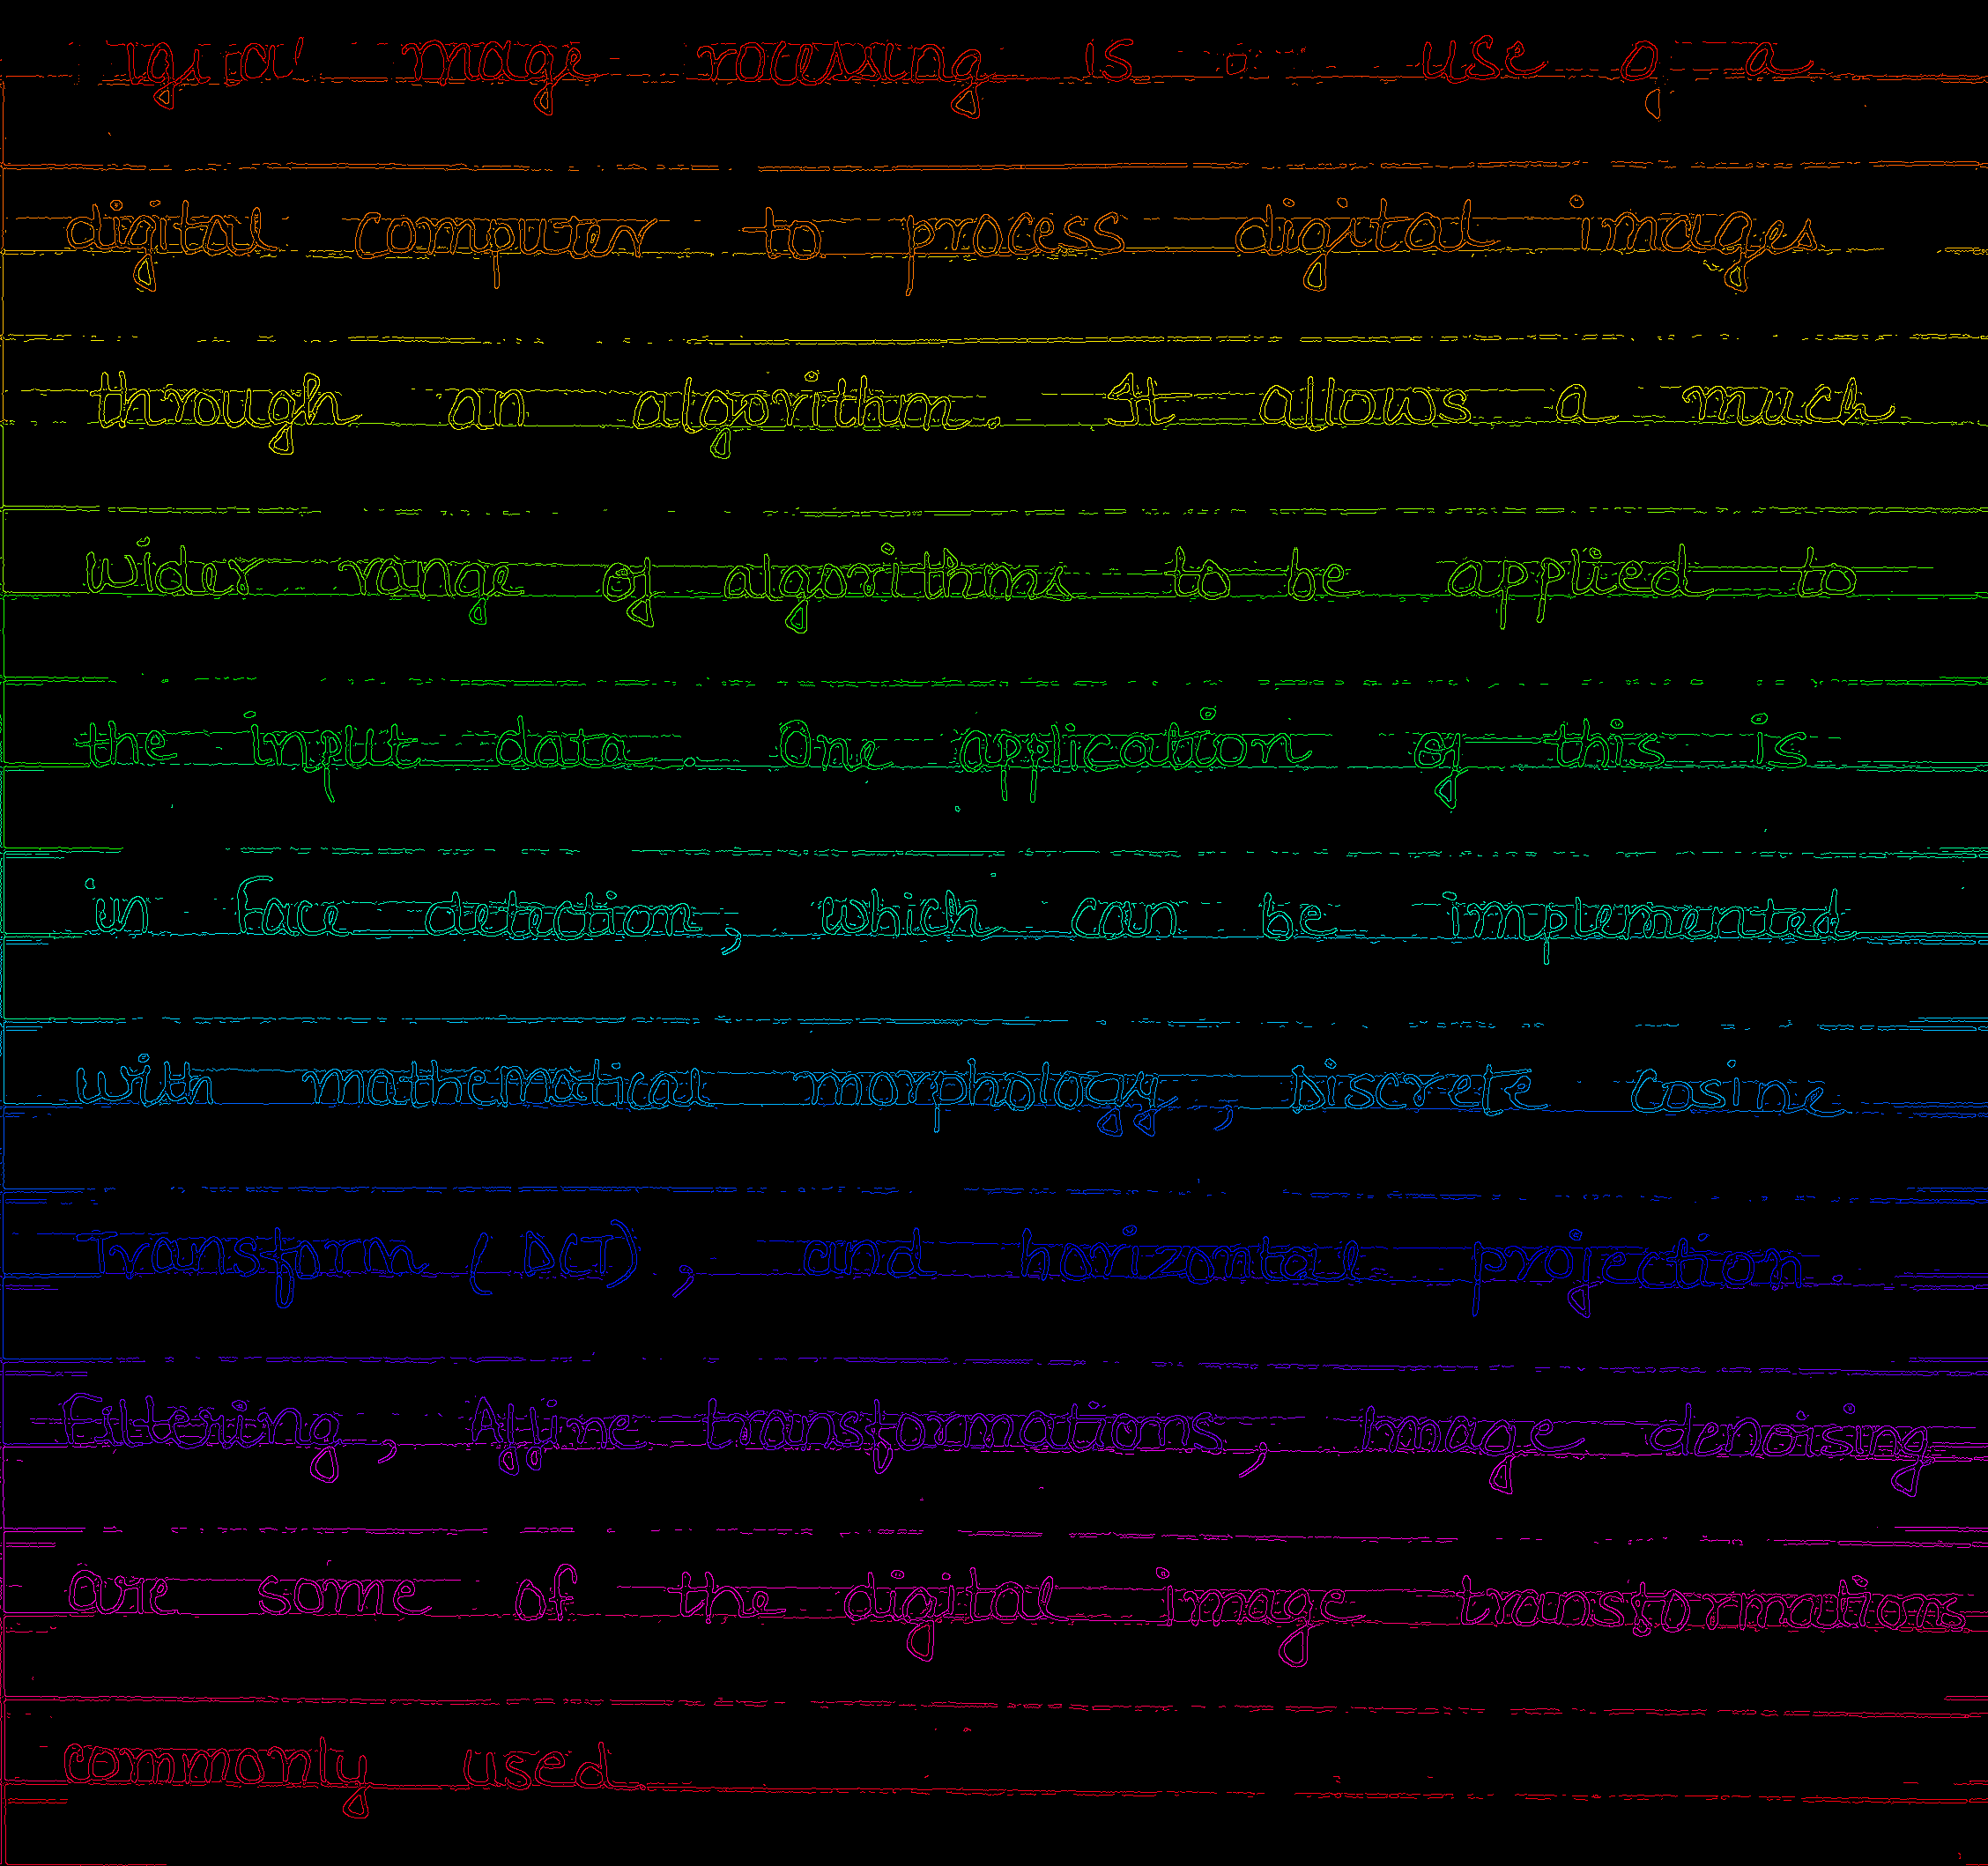 is use of a
digital computer to process digital images
through an algorithm. It allows a much
wider range of algorithms to be applied to
the input data. One application of this is
in Face detection, which can be implemented
with mathematical morphology, Discrete Cosine
Transform (DCT), and horizontal projection.
Filtering, Affine transformations, Image denoising
are some of the digital image transformations
commonly used.